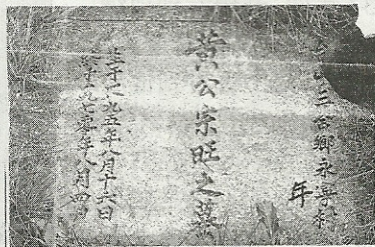 山三合鄉永寧村
年
黃公宗旺之墓
生于一九五年八月十六日
終于一九七零年八月四日